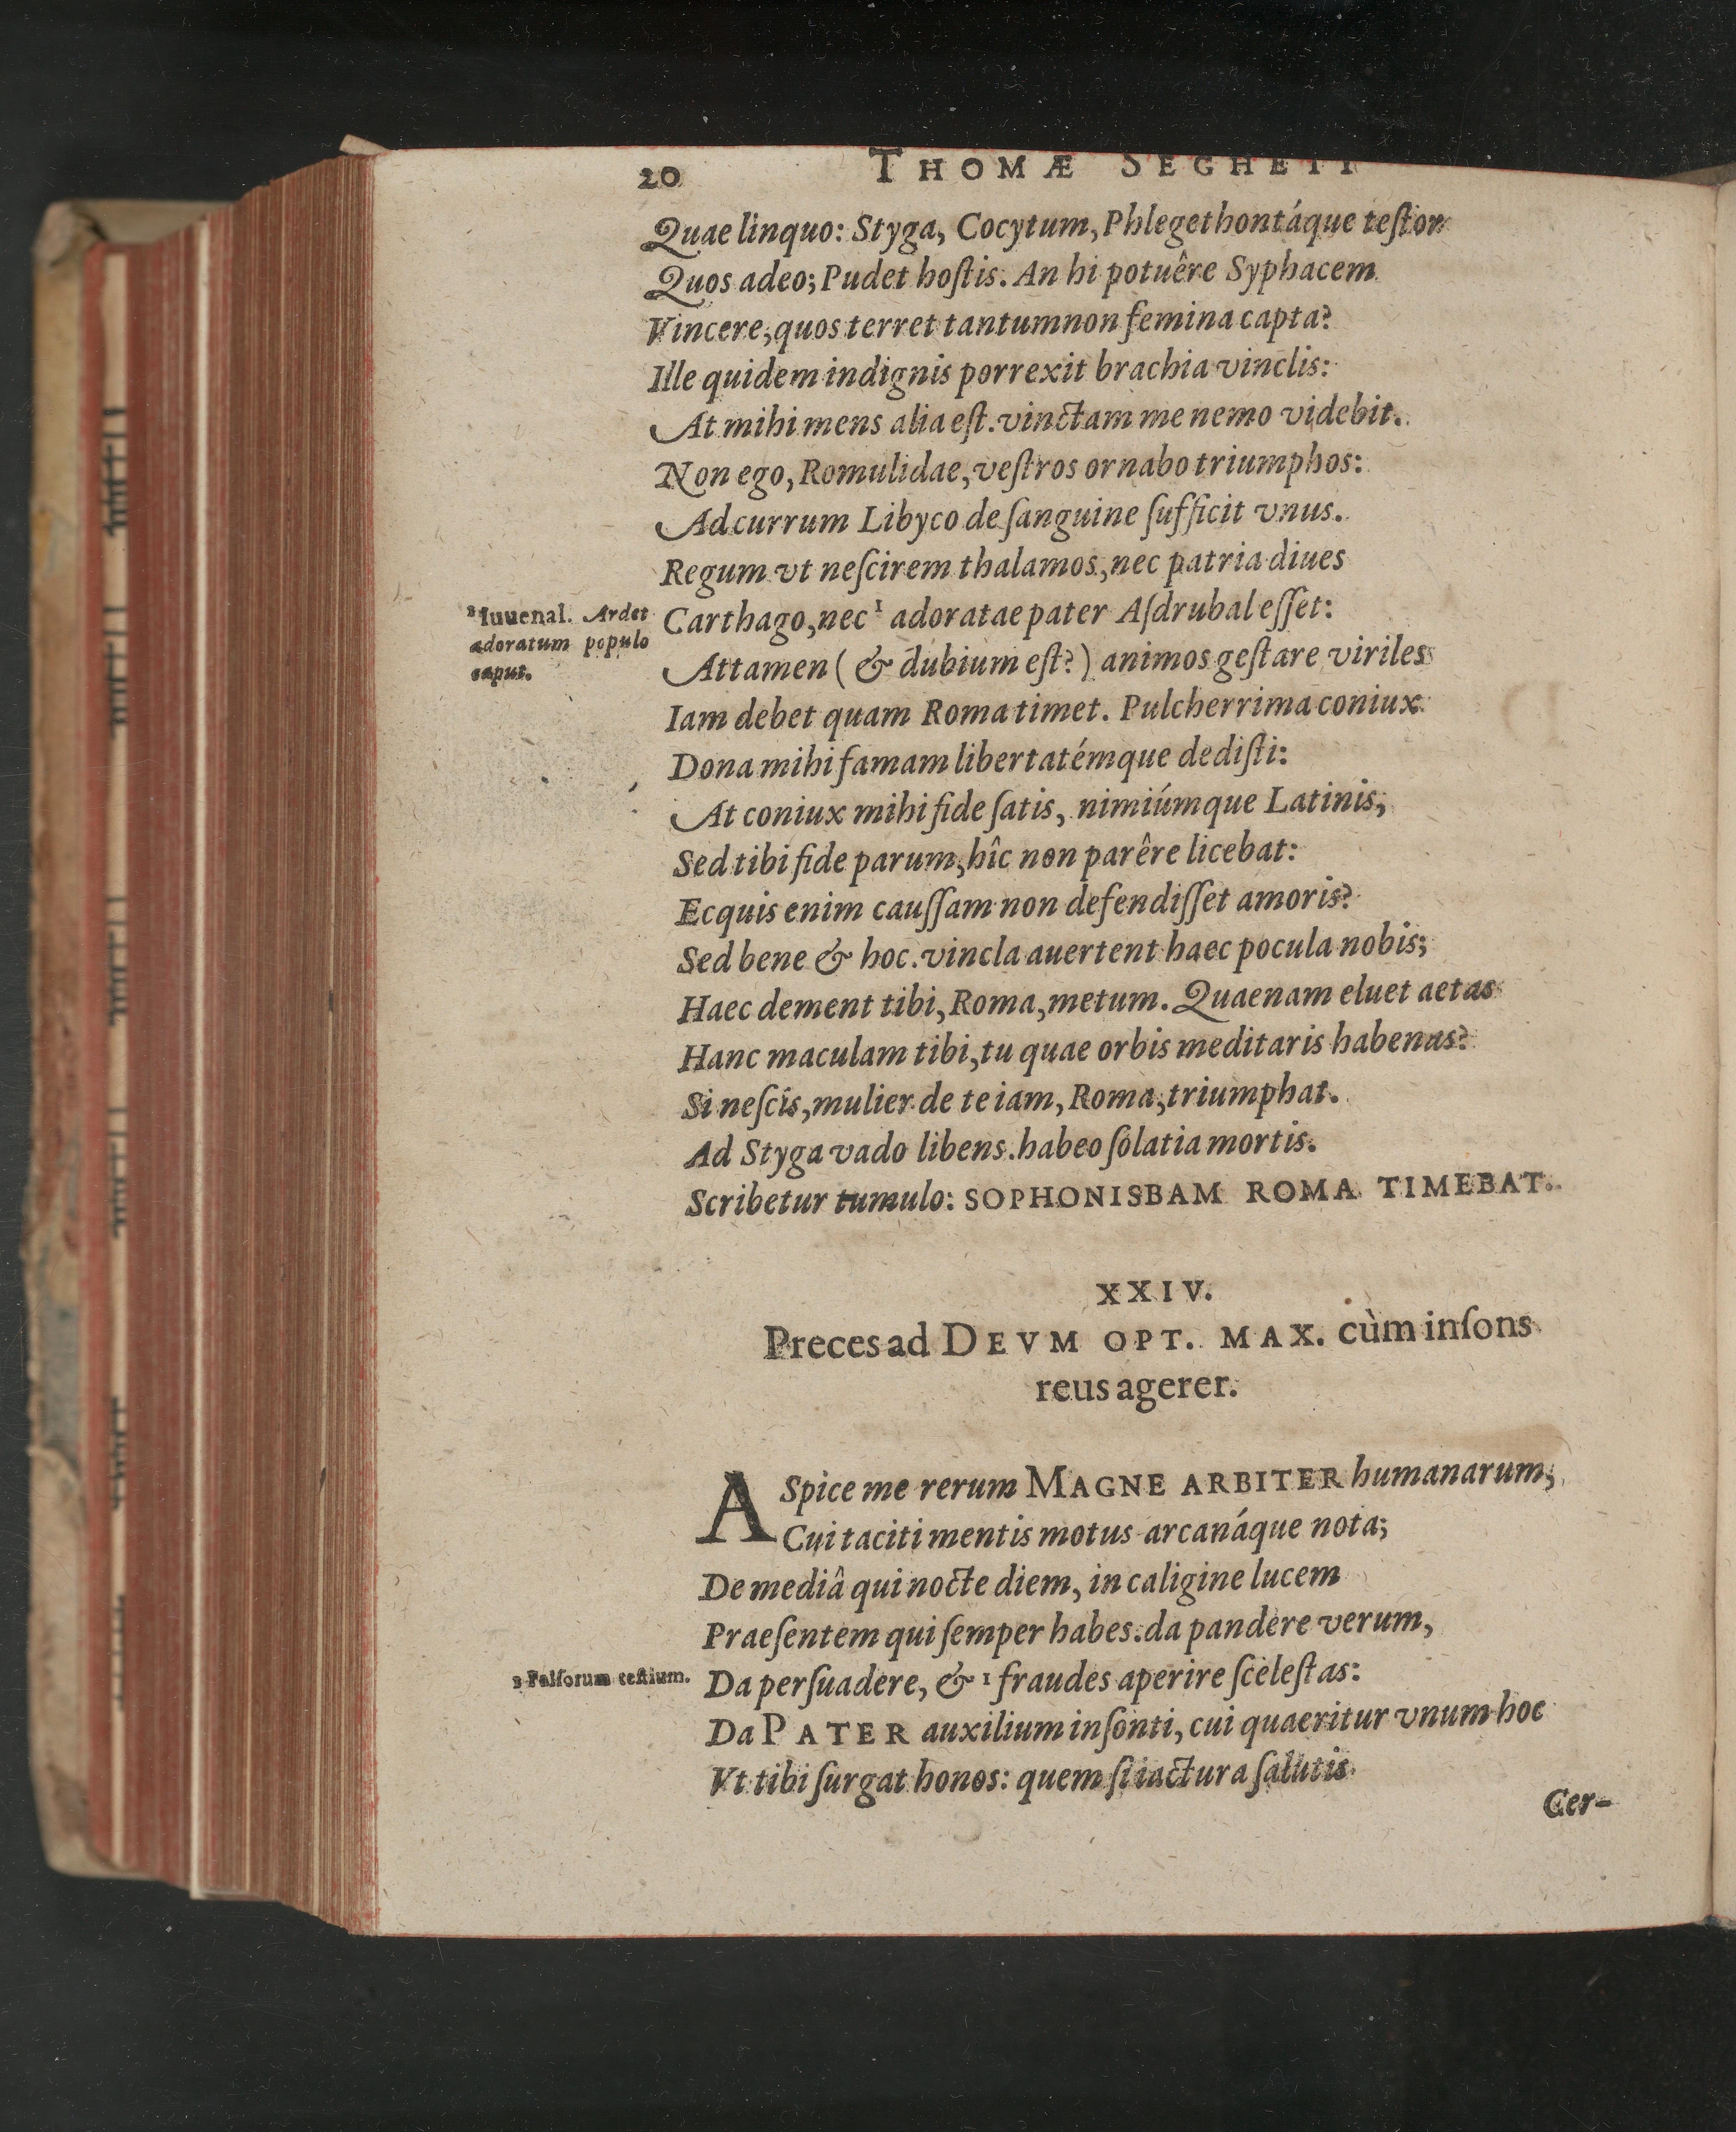 20 THOMÆ SEGHETI
Quae linquo: Styga, Cocytum, Phlegethontáque teſtor
Quos adeo; Pudet hoſtis. An hi potuêre Syphacem
Vincere, quos terret tantumnon femina capta?
Ille quidem indignis porrexit brachia vinclis:
At mihi mens alia eſt. vinctam me nemo videbit.
Non ego, Romulidae, veſtros ornabo triumphos:
Ad currum Libyco de ſanguine ſufficit vnus.
Regum vt neſcirem thalamos, nec patria diues
Carthago, nec ¹ adoratae pater Aſdrubal eſſet:
¹ Iuuenal. Ardet
adoratum populo
caput.
Attamen ( & dubium eſt? ) animos geſtare viriles
Iam debet quam Roma timet. Pulcherrima coniux
Dona mihi famam libertatémque dediſti:
At coniux mihi fide ſatis, nimiúmque Latinis,
Sed tibi fide parum, hîc non parêre licebat:
Ecquis enim cauſſam non defendiſſet amoris?
Sed bene & hoc. vincla auertent haec pocula nobis;
Haec dement tibi, Roma, metum. Quaenam eluet aetas
Hanc maculam tibi, tu quae orbis meditaris habenas?
Si neſcîs, mulier de te iam, Roma, triumphat.
Ad Styga vado libens. habeo ſolatia mortis.
Scribetur tumulo: SOPHONISBAM ROMA TIMEBAT.
XXIV.
Preces ad DEVM OPT. MAX. cùm inſons
reus agerer.
ASpice me rerum MAGNE ARBITER humanarum,
Cui taciti mentis motus arcanáque nota;
De mediâ qui nocte diem, in caligine lucem
Praeſentem qui ſemper habes. da pandere verum,
Da perſuadere, & ¹ fraudes aperire ſceleſtas:
¹ Falſorum teſtium.
Da PATER auxilium inſonti, cui quaeritur vnum hoc
Vt tibi ſurgat honos: quem ſi iactura ſalutis
Cer-